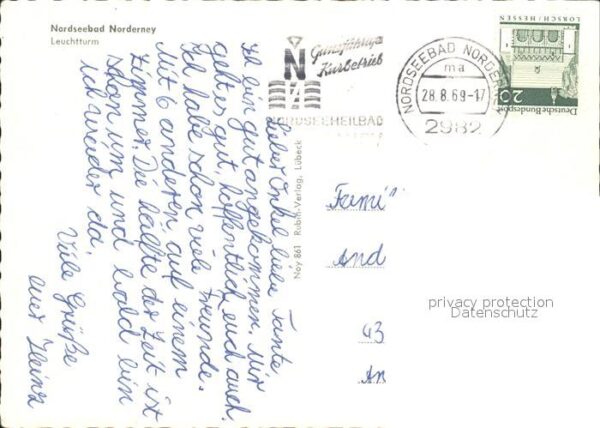 Nordseebad Norderney
Leuchtturm
Lieber Onkel liebe Tante
Ich bin gut angekommen. Mir
geht es gut, hoffentlich euch auch.
Ich habe schon viele Freunde.
Mit 6 anderen auf einem
Zimmer. Die hälfte der Zeit ist
schon um und bald bin
ich wieder da
Viele Grüße
euer Heinz
Noy 861 Rubin-Verlag, Lübeck
Ganzjähriger
Kurbetrieb
N
NORDSEEHEILBAD
NORDSEEBAD NORDERNEY
ma
28.8.69-17
2982
LORSCH/HESSEN
20
Deutsche Bundespost
Fami
And
43
An
privacy protection
Datenschutz